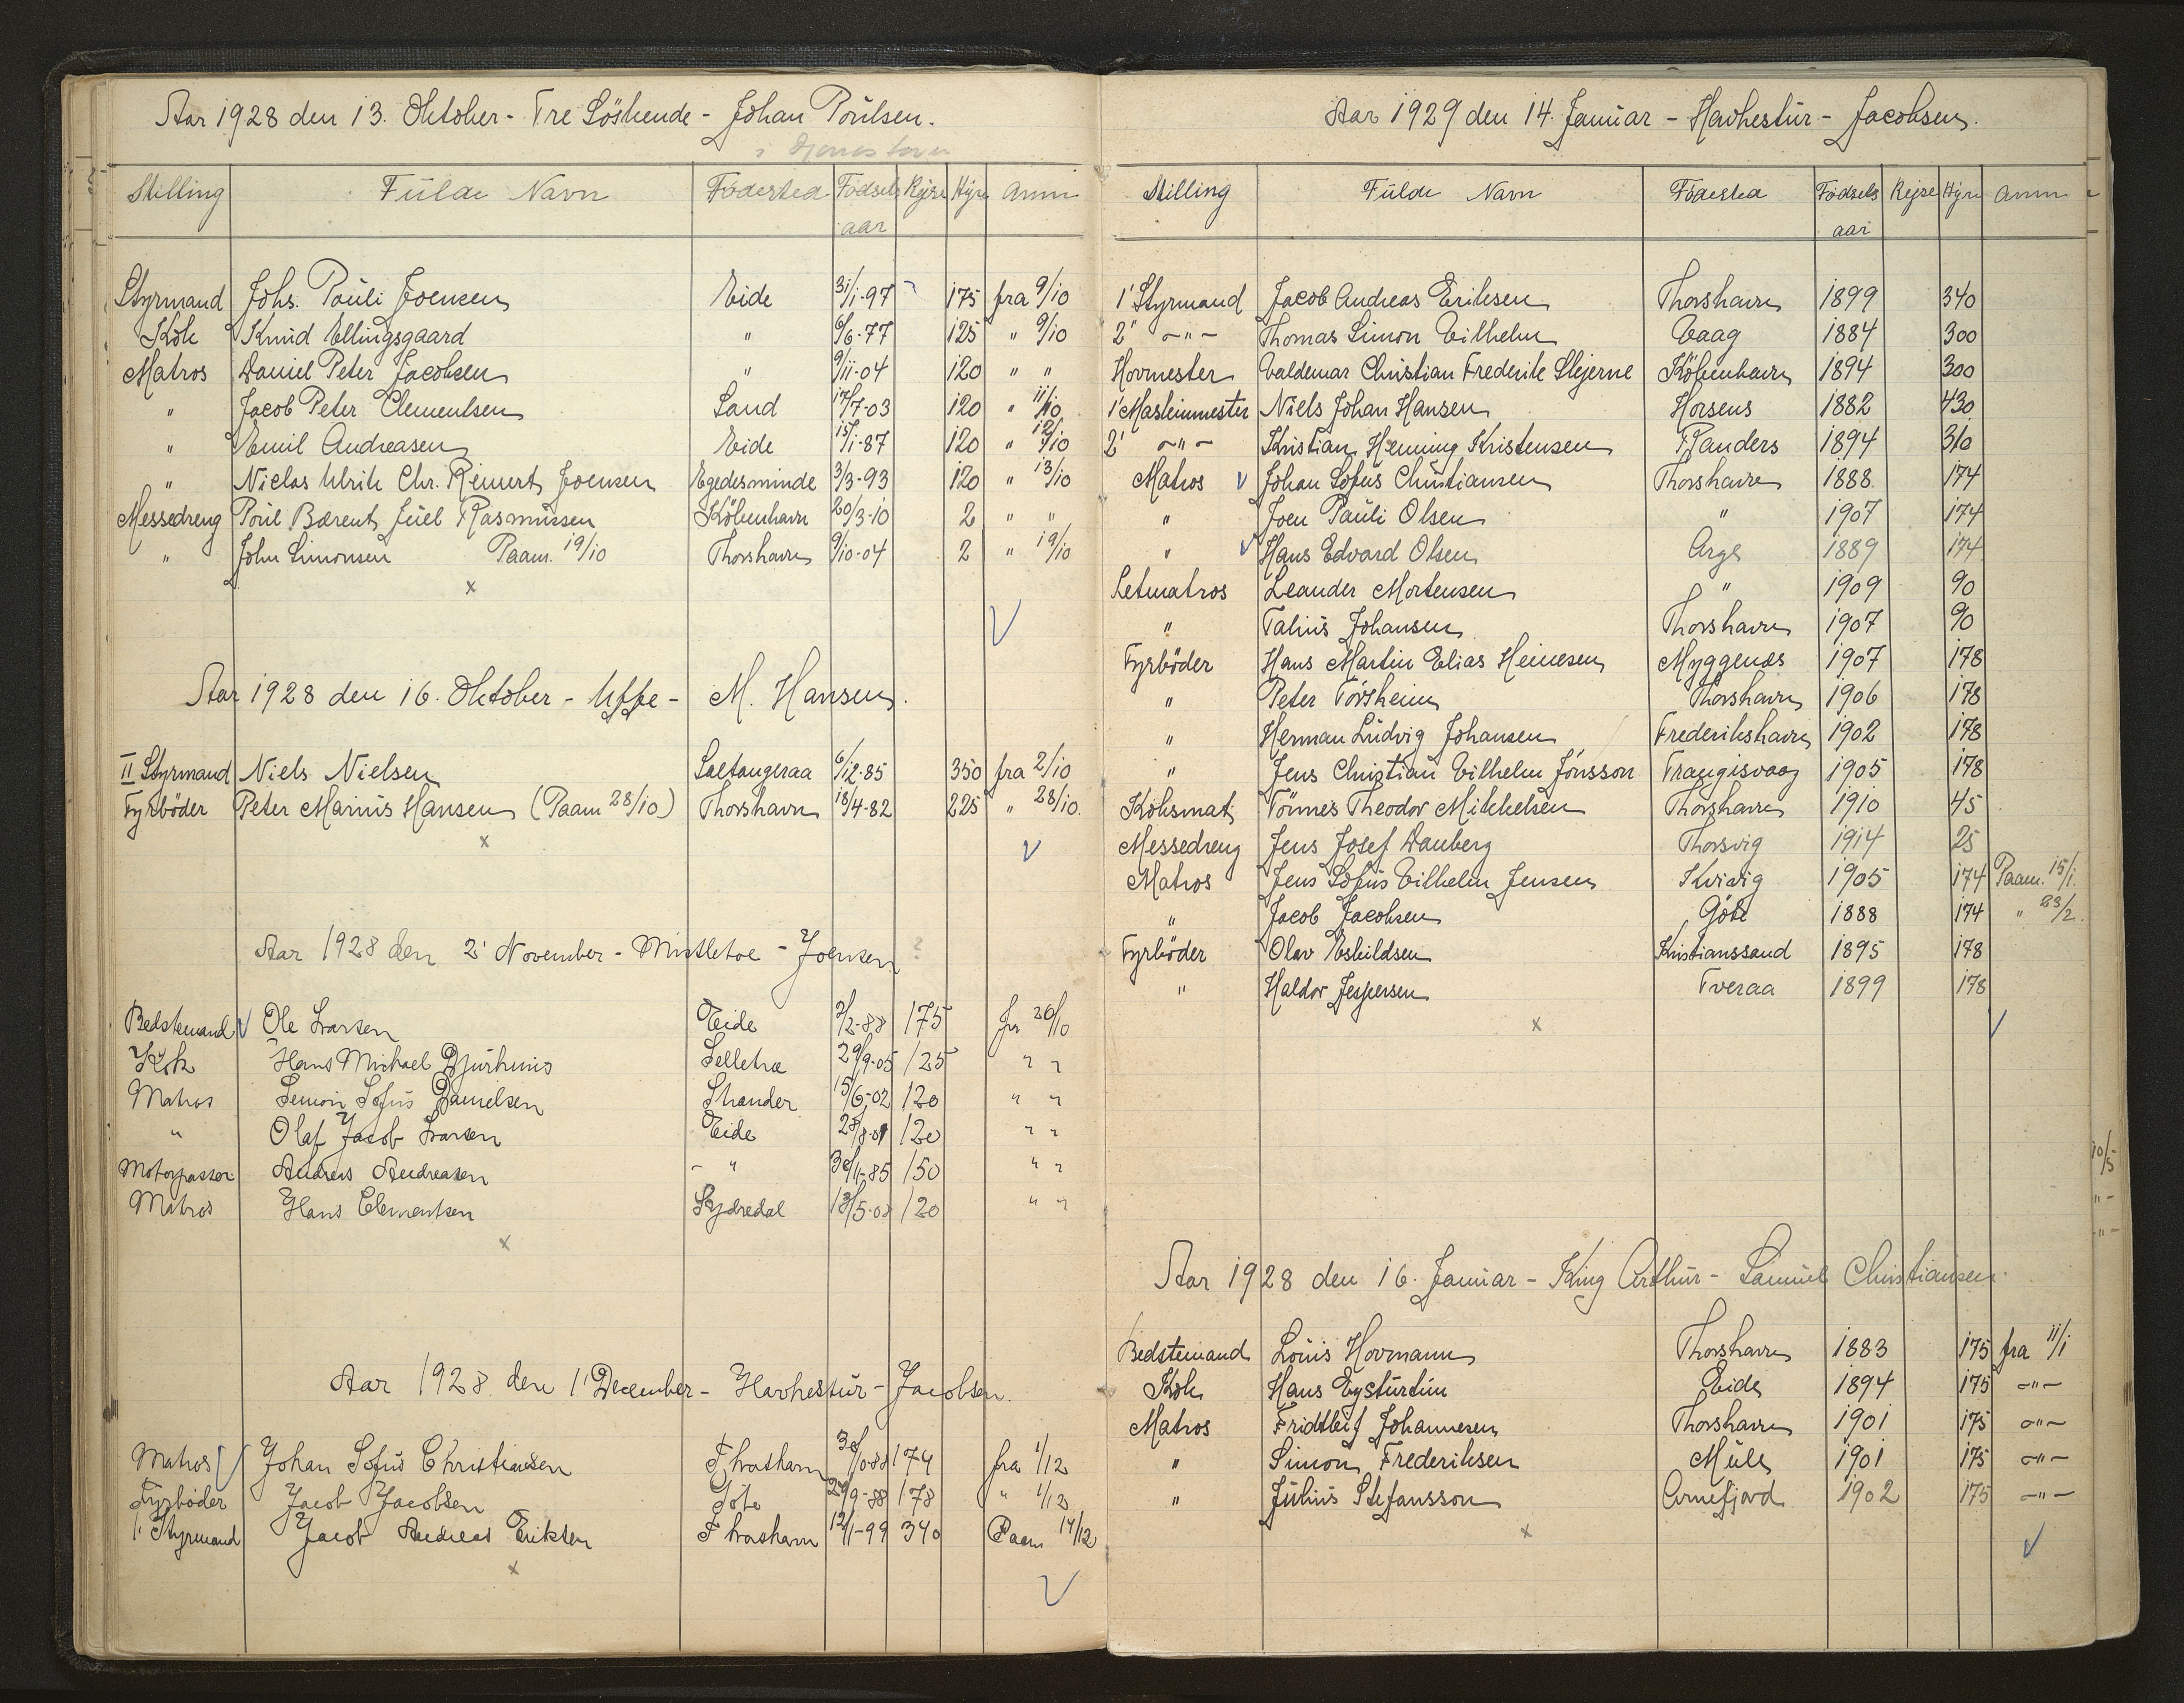 Aar 1928 den 13. Oktober - Tre Söskende - Johan Poulsen.
Stilling Fulde Navn Födested Födsels aar Rejse Hyre Anm
Styrmand Johs. Pauli Joensen Eide 31/1-97 175 fra 9/10
Kok Knud Ellingsgaard " 6/6-77 125 " 9/10
Matros Daniel Peter Jacobsen " 9/11-04 120 " "
" Jacob Peter Clementsen Sand 17/7-03 120 " 11/10
" Emil Andreasen Eide 15/1-87 120 " 12/10
" Niclas Ulrik Chr. Reinert Joensen Egedesminde 3/3-93 120 " 13/10
Messedreng Poul Bærent Juel Rasmussen Köbenhavn 20/3-10 2 " "
" John Simonsen Paam. 19/10 Thorshavn 9/10-04 2 " 19/10
x
Aar 1928 den 16. Oktober - Uffe - M. Hansen.
II Styrmand Niels Nielsen Saltangeraa 6/12-85 350 fra 2/10
Fyrböder Peter Marius Hansen (Paam 28/10) Thorshavn 18/4-82 225 " 28/10.
x
Aar 1928 den 2' November - Mistletoe - Joensen ?
Bedstemand Ole Larsen Eide 2/2-88 175 fr 20/10
Kok Hans Michael Djurhuus Selletræ 29/9-05 125 " "
Matros Semon Sofus Danielsen Strander 15/6-02 120 " "
" Olaf Jacob Larsen Eide 28/8-01 120 " "
Motorpasser Andreas Andreasen - " 30/11-85 150 " "
Matros Hans Clementsen Sydredal 18/5-08 120 " "
x
Aar 1928 den 1' December - Havhestur - Jacobsen.
Matros Johan Sofus Christiansen Thorshavn 30/10-88 174 fra 1/12
Fyrböder Jacob Jacobsen Göte 29/9-88 178 " 1/12
1' Styrmand Jacob Andreas Eriksen Thorshavn 12/1-99 340 Paam 14/12
x
Aar 1929 den 14. Januar - Havhestur - Jacobsen.
Stilling Fulde Navn Födested Födsels aar Rejse Hyre Anm
1' Styrmand Jacob Andreas Eriksen Thorshavn 1899 340
2' -"- Thomas Simon Vilhelm Vaag 1884 300
Hovmester Valdemar Christian Frederik Stjerne Köbenhavn 1894 300
1' Maskinmester Niels Johan Hansen Horsens 1882 430
2' -"- Kristian Henning Kristensen Randers 1894 310
Matros Johan Sofus Christiansen Thorshavn 1888 174
" Joen Pauli Olsen " 1907 174
" Hans Edvard Olsen Arge 1889 174
Letmatros Leander Mortensen " 1909 90
" Talius Johansen Thorshavn 1907 90
Fyrböder Hans Martin Elias Heinesen Myggenæs 1907 178
" Peter Tórsheim Thorshavn 1906 178
" Herman Ludvig Johansen Frederikshavn 1902 178
" Jens Christian Vilhelm Jónsson Frangisvaag 1905 178
Koksmat Tönnes Theodor Mikkelsen Thorshavn 1910 45
Messedreng Jens Josef Danberg Thorsvig 1914 25
Matros Jens Sofus Vilhelm Jensen Kvivig 1905 174 Paam. 15/1.
" Jacob Jacobsen Göte 1888 174 " 23/2.
Fyrböder Olav Eskildsen Kristianssand 1895 178
" Haldor Jespersen Tveraa 1899 178
x
Aar 1928 den 16. Januar - King Arthur - Samuel Christiansen.
Bedstemand Louis Hovmann Thorshavn 1883 175 fra 11/1
Kok Hans Eysturtún Eide 1894 175 -"-
Matros Fridtleif Johannesen Thorshavn 1901 175 -"-
" Simon Frederiksen Mule 1901 175 -"-
" Julius Stefansson Arnefjord 1902 175 -"-
x
10/5
"-
"-